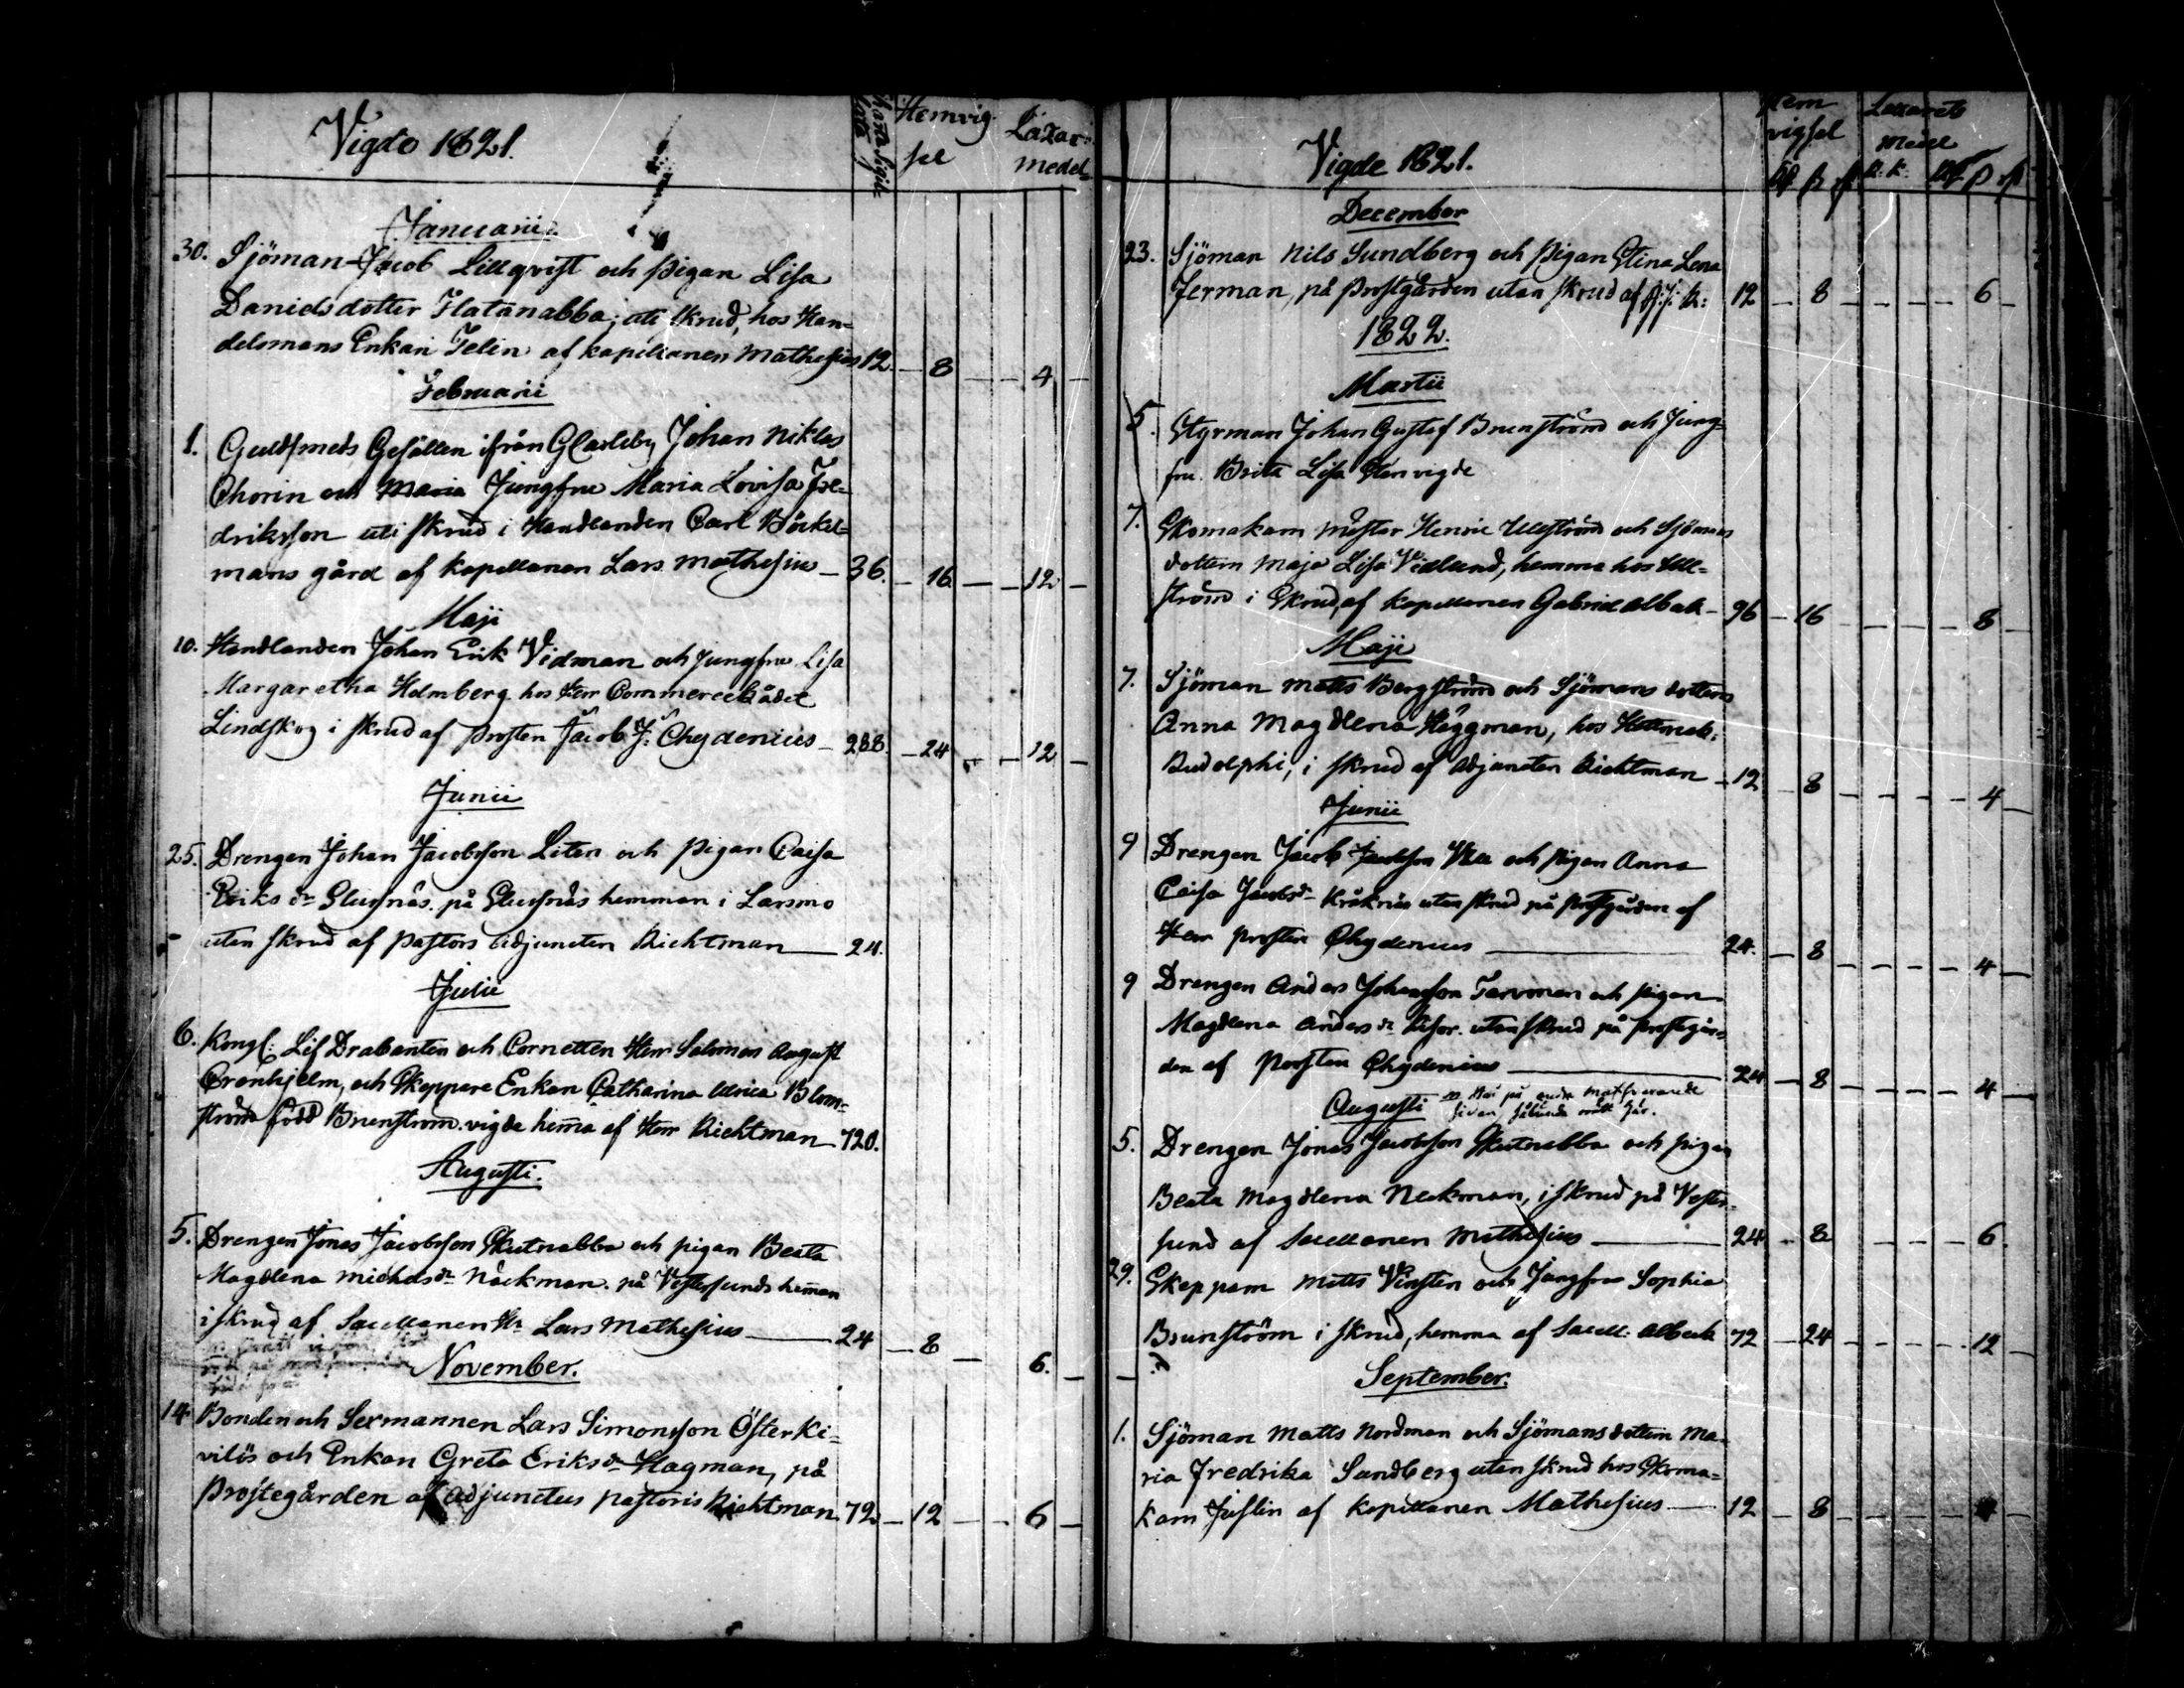 Vigde 1821.
Hemvig-
sel
Lazar:
medel
Januarii
30. Sjöman Jacob Lillqvist och pigan Lisa
Danielsdotter Flatanabba, uti skrud, hos Han-
delsmans Enkan Telin af kapellanen Mathesius 12 – 8 – – 4 –
Februarii
1. Guldsmeds Gesällen ifrån Glarleby Johan Niklas
Thorin och Maria Jungfru Maria Lovisa Fre-
driksson uti skrud i Handlanden Carl Böckel-
mans gård af Kapellanen Lars Mathesius – 36. – 16 – – 12 –
Maji
10. Handlanden Johan Erik Vidman och Jungfru Lisa
Margaretha Holmberg hos Herr Commercerådet
Lindskog i skrud af Prosten Jacob J: Chydenius – 288. – 24 – – 12 –
Junii
25. Drengen Johan Jacobsson Liten och pigan Caisa
Eriks dr Slussnäs på Slussnäs hemman i Larsmo
utan skrud af Pastors Adjuncten Richtman — 24.
Julii
6. Kongl: Lif Drabanten och Cornetten Herr Salomon August
Cronhjelm, och Skeppare Enkan Catharina Ulrica Blom-
ström född Brunström vigde hemma af Herr Richtman 720.
Augusti.
5. Drengen Jonas Jacobsson Skutnabba och pigan Beata
Magdlena Michelsdr Näckman på Vestersunds heman
i skrud af Sacellanen Hr Lars Mathesius — 24 – 8 – 6. –
November.
14 Bonden och Sexmannen Lars Simonsson Österki-
vilös och Enkan Greta Eriksdr Hagman, på
Prostegården af Adjunctus pastoris Richtman 72 – 12 – – 6 –
Vigde 1821.
Hem
vigsel
Lazarets
medel
December
23. Sjöman Nils Sundberg och Pigan Stina Lena
Jerman, på Prostgården utan skrud af A: J: R: 12 – 8 – – – – 6 –
1822.
Martii
5. Styrman Johan Gustaf Brunström och Jung-
fru Brita Lisa Sten vigde
7. Skomakarn mester Henric Ullström och Sjömans
dottern Maja Lisa Vidlund, hemma hos Ull-
ström i Skrud af Kapellanen Gabriel Alback – 96 – 16 – – – – 8 –
Maji
7. Sjöman Matts Bergström och Sjömans dottern
Anna Magdlena Häggman, hos Hattmak:
Rudolphi, i skrud af Adjuncten Richtman – 12 – 8 – – – – 4 –
Junii
9 Drengen Jacob Jacobsson och Pigan Anna
Caisa Jacobsdr Kråknäs utan skrud på Prostgården af
Herr Prosten Chydenius — 24. – 8 – – – – 4 –
9 Drengen Anders Johansson Tarvonen och Pigan
Magdlena Andersdr utan skrud på Prostegår-
den af Prosten Chydenius — 24 – 8 – – – – 4 –
Augusti på andra motsvarande
sidan
5. Drengen Jonas Jacobsson Skutnabba och pigan
Beata Magdlena Neckman, i skrud på Vester-
sund af Sacellanen Mathesius — 24 – 8 – – – 6.
29. Skeppam Matts Vinsten och Jungfru Sophia
Brunström i skrud, hemma af Sacell: Alback 72 – 24 – – – – 12 –
September.
1. Sjöman Matts Nordman och Sjömansdottern Ma-
ria Fredrika Sandberg utan skrud hos Skoma-
karn Juslin af Kapellanen Mathesius — 12 – 8 – – – – 4 –